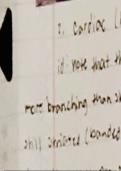 2. Cardiac (
id: note that th
more branching than sk
still striated (banded